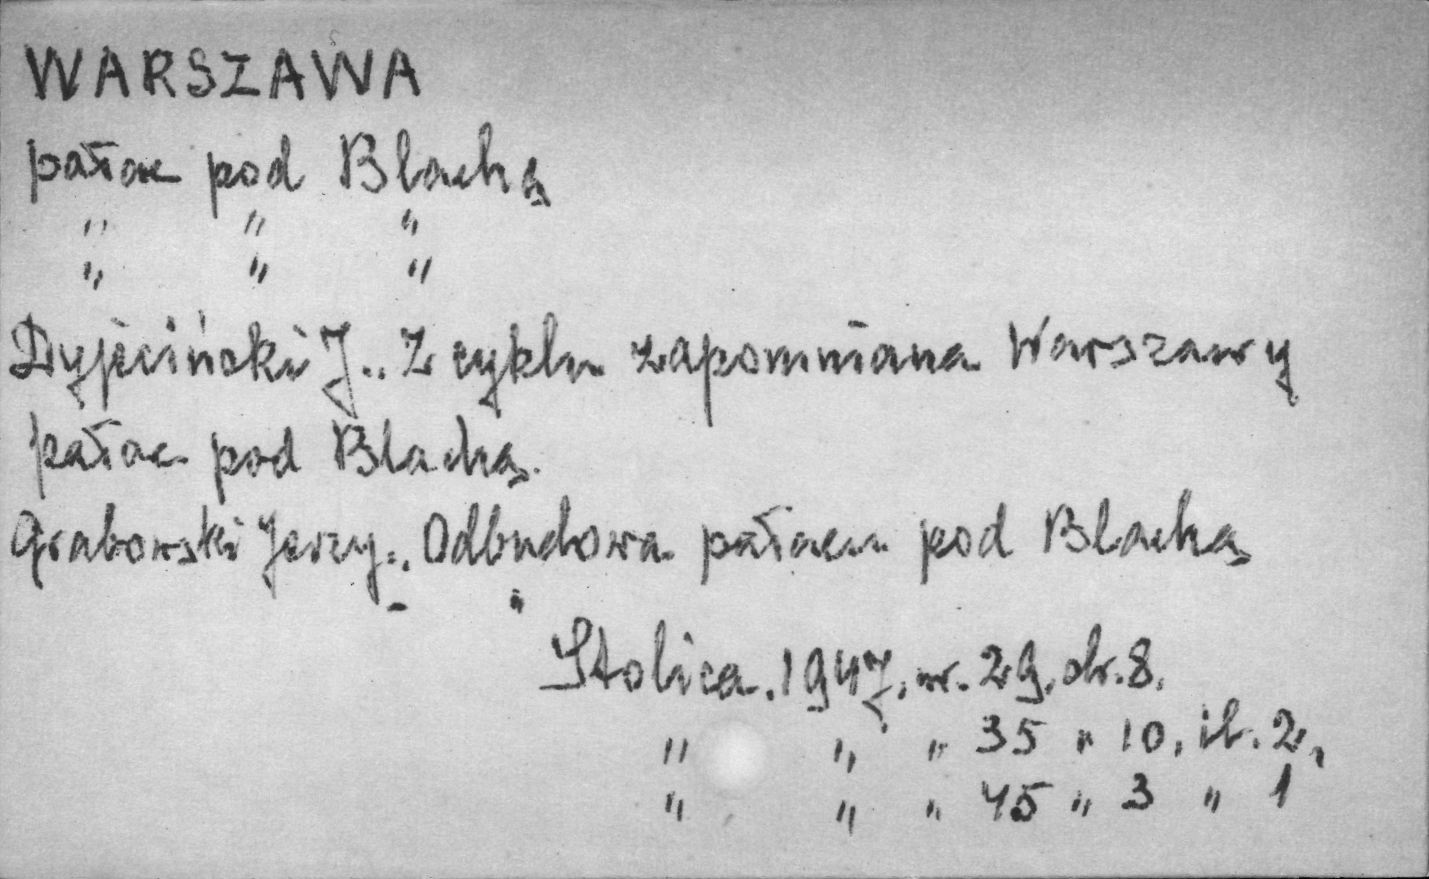 WARSZAWA
pałac pod Blachą
" " "
" " "
J.. Z cyklu zapomniana Warszawy
pałac pod Blachą.
Grabowski Jerzy:. Odbudowa pałacu pod Blachą
- "
Stolica. 1947, nr. 29, str. 8,
" " " 35 " 10, il. 2,
" " " 45 " 3 " 1